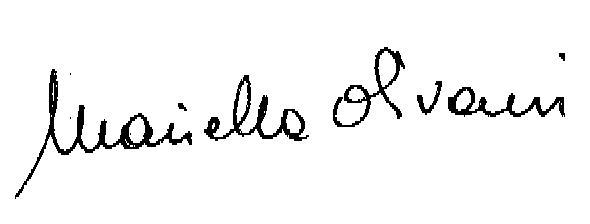 Mariella Olivami